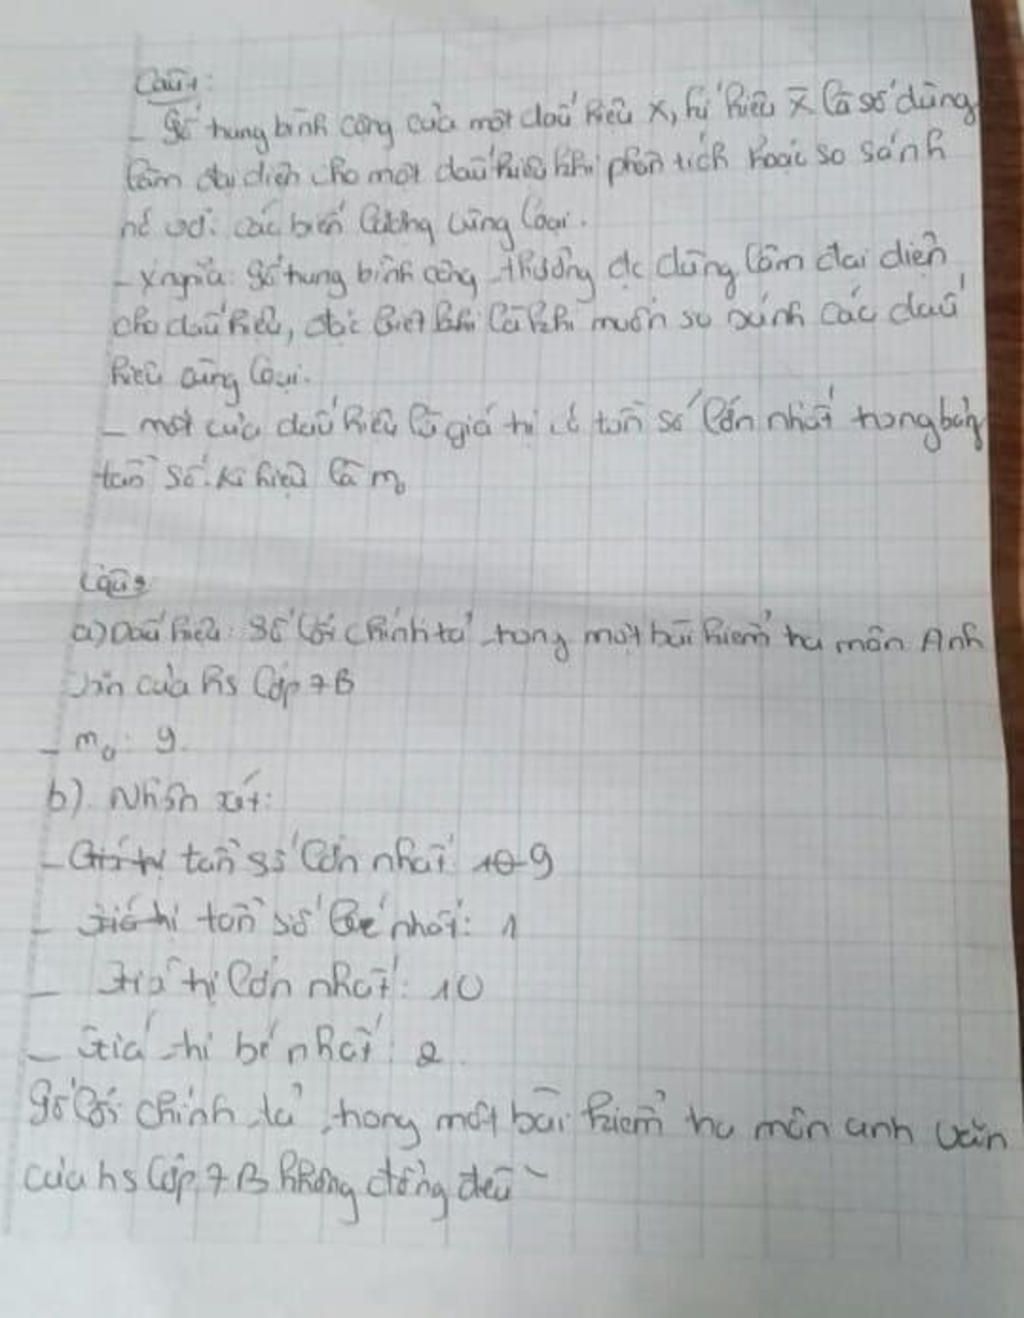 Câu 1:
- Số trung bình cộng của một dấu hiệu X, kí hiệu X̄ là số dùng
làm đại diện cho một dấu hiệu khi phân tích hoặc so sánh
nó với các biến lượng cùng loại.
- Ý nghĩa: Số trung bình cộng thường đc dùng làm đại diện
cho dấu hiệu, đặc biệt khi là khi muốn so sánh các dấu
hiệu cùng loại.
- mốt của dấu hiệu là giá trị có tần số lớn nhất trong bảng
tần số. Kí hiệu là m₀
Câu
a) Dấu hiệu: Số lỗi chính tả trong một bài kiểm tra môn Anh
văn của hs lớp 7B
- m₀: 9.
b). Nhận xét:
- tần số lớn nhất: 9
- tần số bé nhất: 1
- Giá trị lớn nhất: 10
- Giá trị bé nhất: 2
Số lỗi chính tả trong một bài kiểm tra môn anh văn
của hs lớp 7B không đồng đều